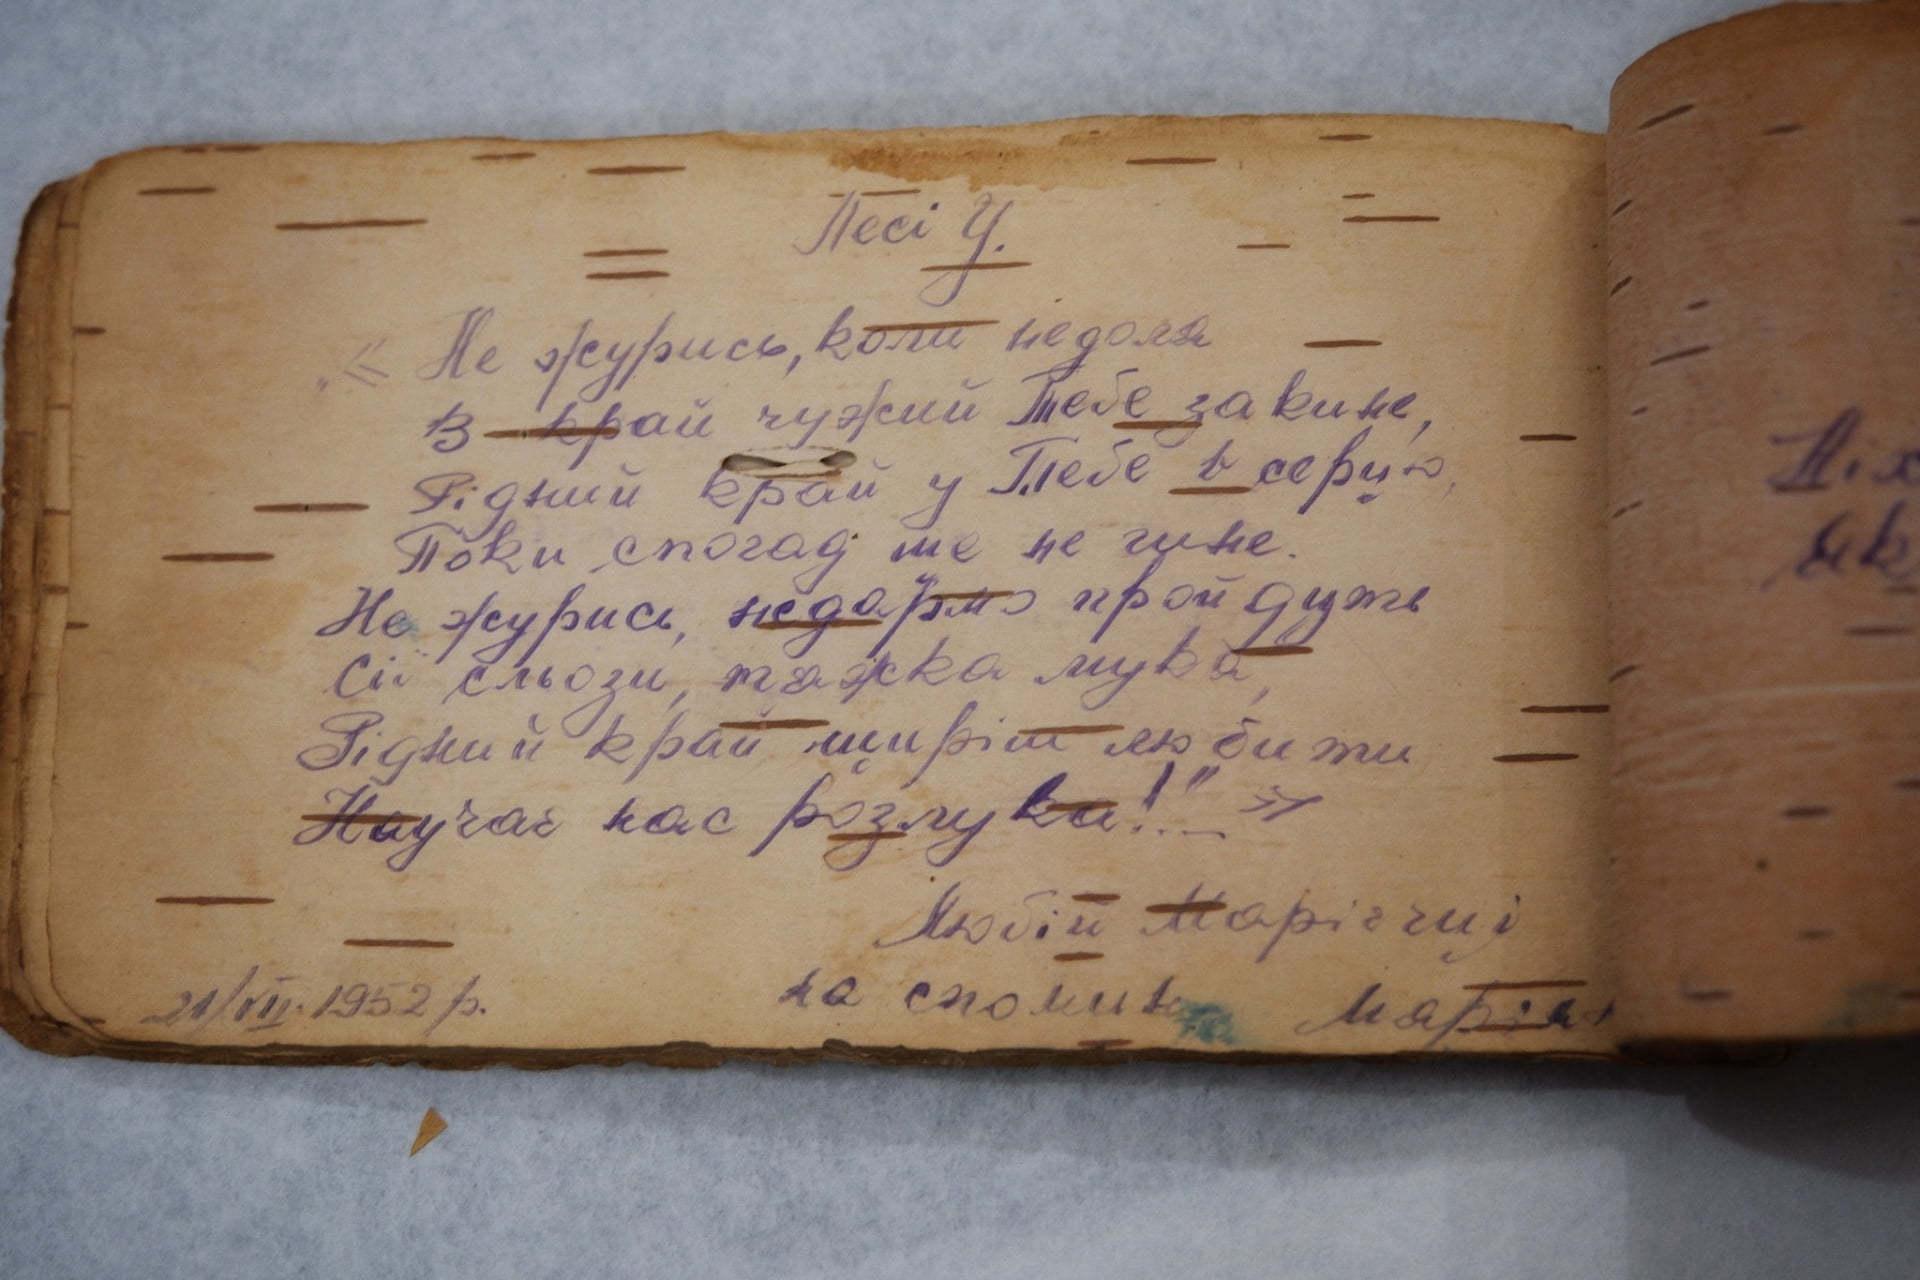 Лесі У.
« Не журись, коли недоля
В край чужий Тебе закине,
Рідний край у Тебе в серцю,
Поки спогад ще не гине.
Не журись, недармо пройдуть
Сії сльози, тяжка мука,
Рідний край щиріш любити
Научає нас розлука!..." »
Любій Марієчці
на спомин
21/VII. 1952 р.